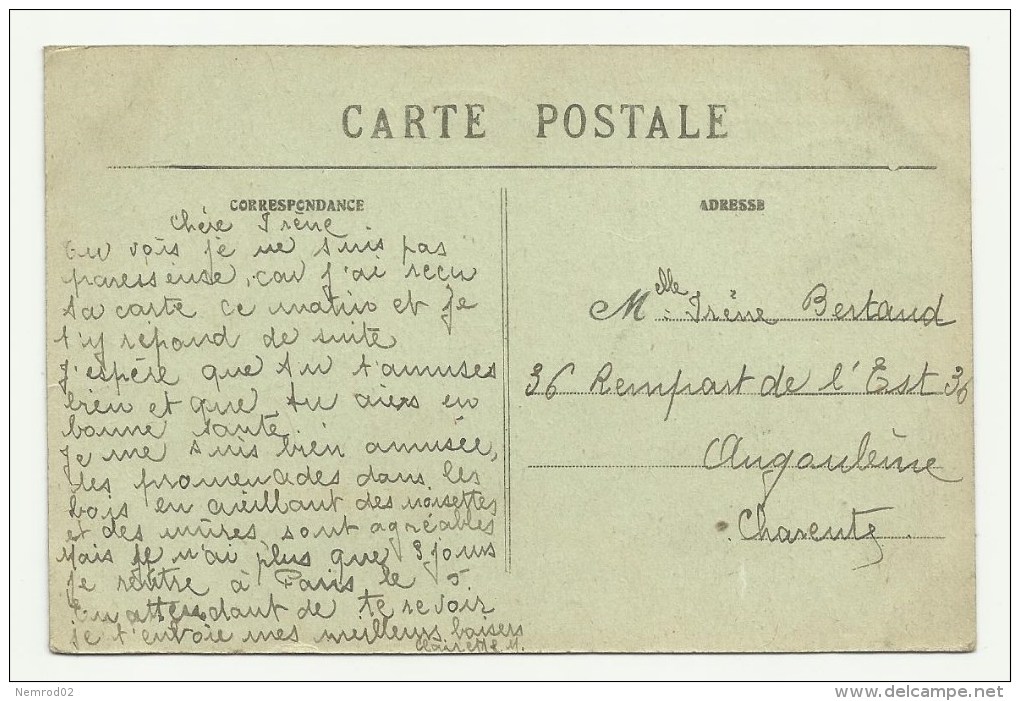 CARTE POSTALE
CORRESPONDANCE
Chère Irène.
Tu vois je ne suis pas
paresseuse, car j'ai reçu
ta carte ce matin et je
t'y répond de suite
J'espère que tu t'amuses
bien et que tu aies en
bonne santé.
Je me suis bien amusée,
les promenades dans les
bois en cueillant des noisettes
et des mûres sont agréables
Mais je n'ai plus que 3 jours
je rentre à Paris le 5
En attendant de te revoir
je t'envoie mes meilleurs baisers
Clairette M.
ADRESSE
Melle Irène Bertaud
36 Rempart de l'Est 36
Angoulême
Charente
Nemrod02
www.delcampe.net